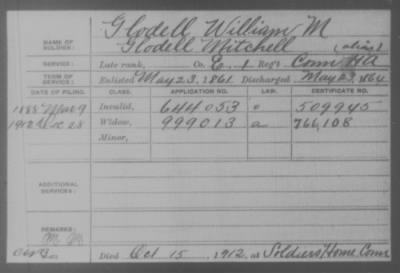 NAME OF SOLDIER: Glodell William M
Glodell Mitchell (alias)
SERVICE: Late rank, Co. E. 1 Reg't Conn HA
TERM OF SERVICE: Enlisted May 23, 1861 Discharged May 23, 1864
DATE OF FILING. CLASS. APPLICATION NO. LAW. CERTIFICATE NO.
1888 Mar 9 Invalid, 644053 509945
1912 Dec 28 Widow, 999013 a 766,108
Minor,
ADDITIONAL SERVICES:
REMARKS:
Died Oct 15, 1912, at Soldiers Home Conn